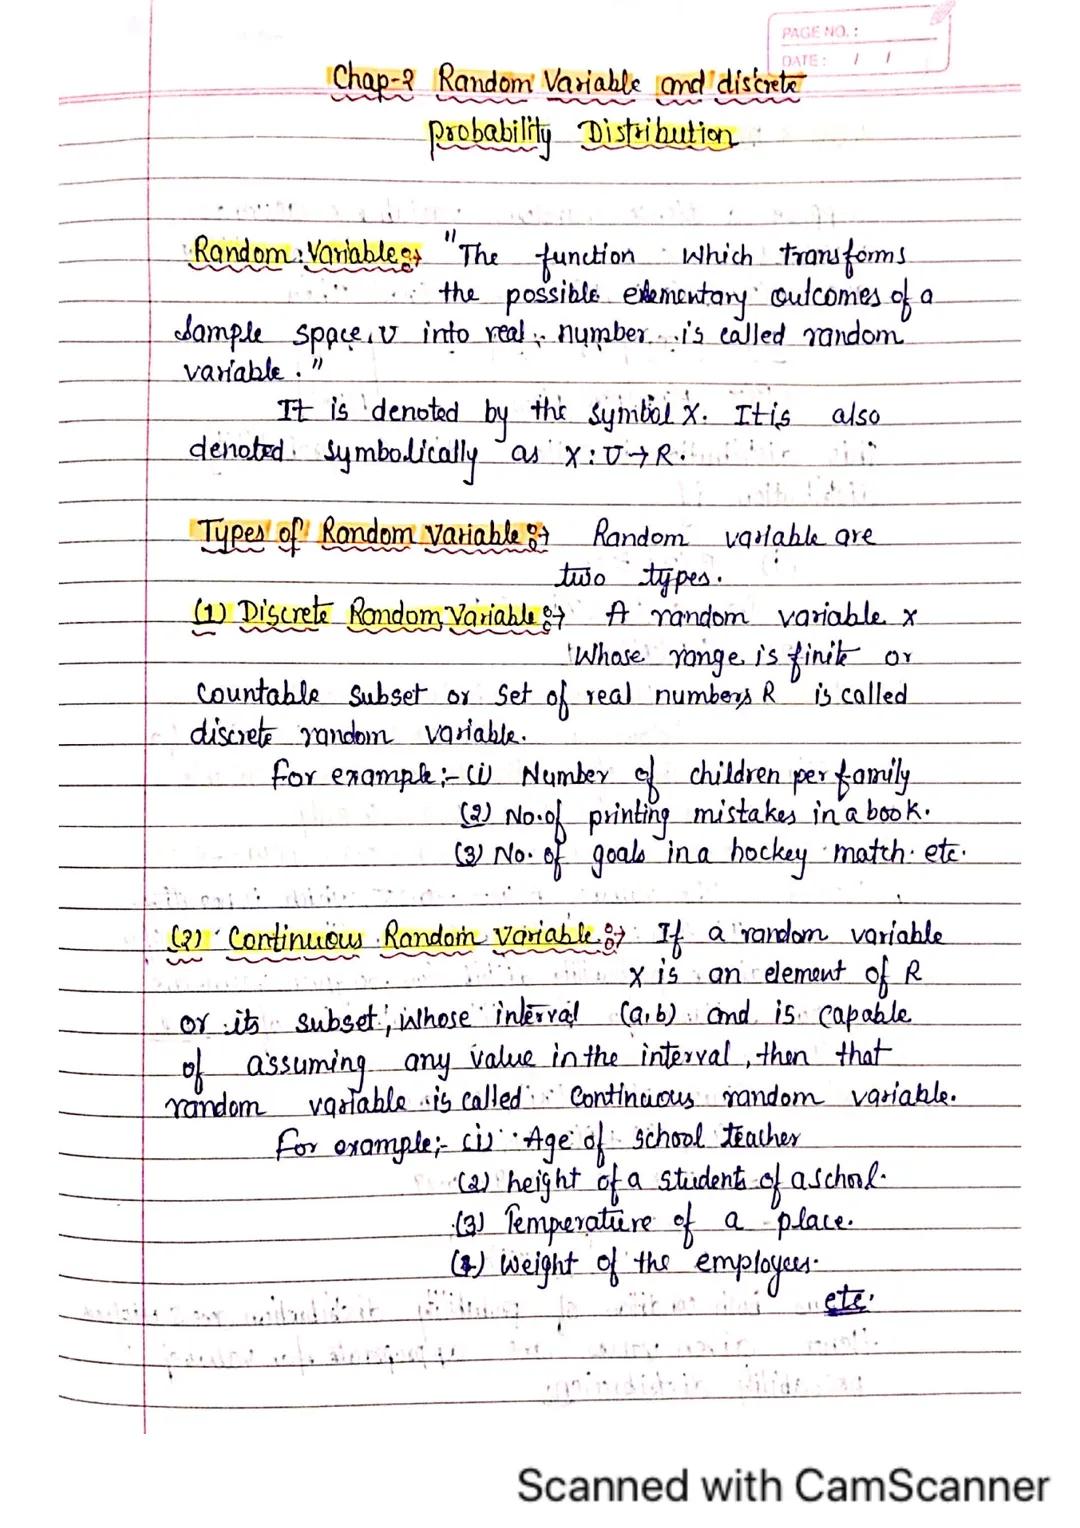 PAGE NO.:
DATE: / /
Chap-2 Random Variable and discrete
probability Distribution
Random Variable:→ "The function which transforms
the possible elementary outcomes of a
Sample space, U into real number is called random
variable."
It is denoted by the symbol X. It is also
denoted symbolically as X:U→R.
Types of Random Variable:→ Random variable are
two types.
(1) Discrete Random Variable:→ A random variable x
Whose range is finite or
Countable subset or set of real numbers R is called
discrete random variable.
for example:- (i) Number of children per family
(2) No. of printing mistakes in a book.
(3) No. of goals in a hockey match. etc.
(2) Continuous Random Variable:→ If a random variable
X is an element of R
or its subset, whose interval (a,b) and is capable
of assuming any value in the interval, then that
random variable is called Continuous random variable.
for example;- (i) Age of school teacher
(2) height of a students of a school.
(3) Temperature of a place.
(4) weight of the employees.
etc.
Scanned with CamScanner